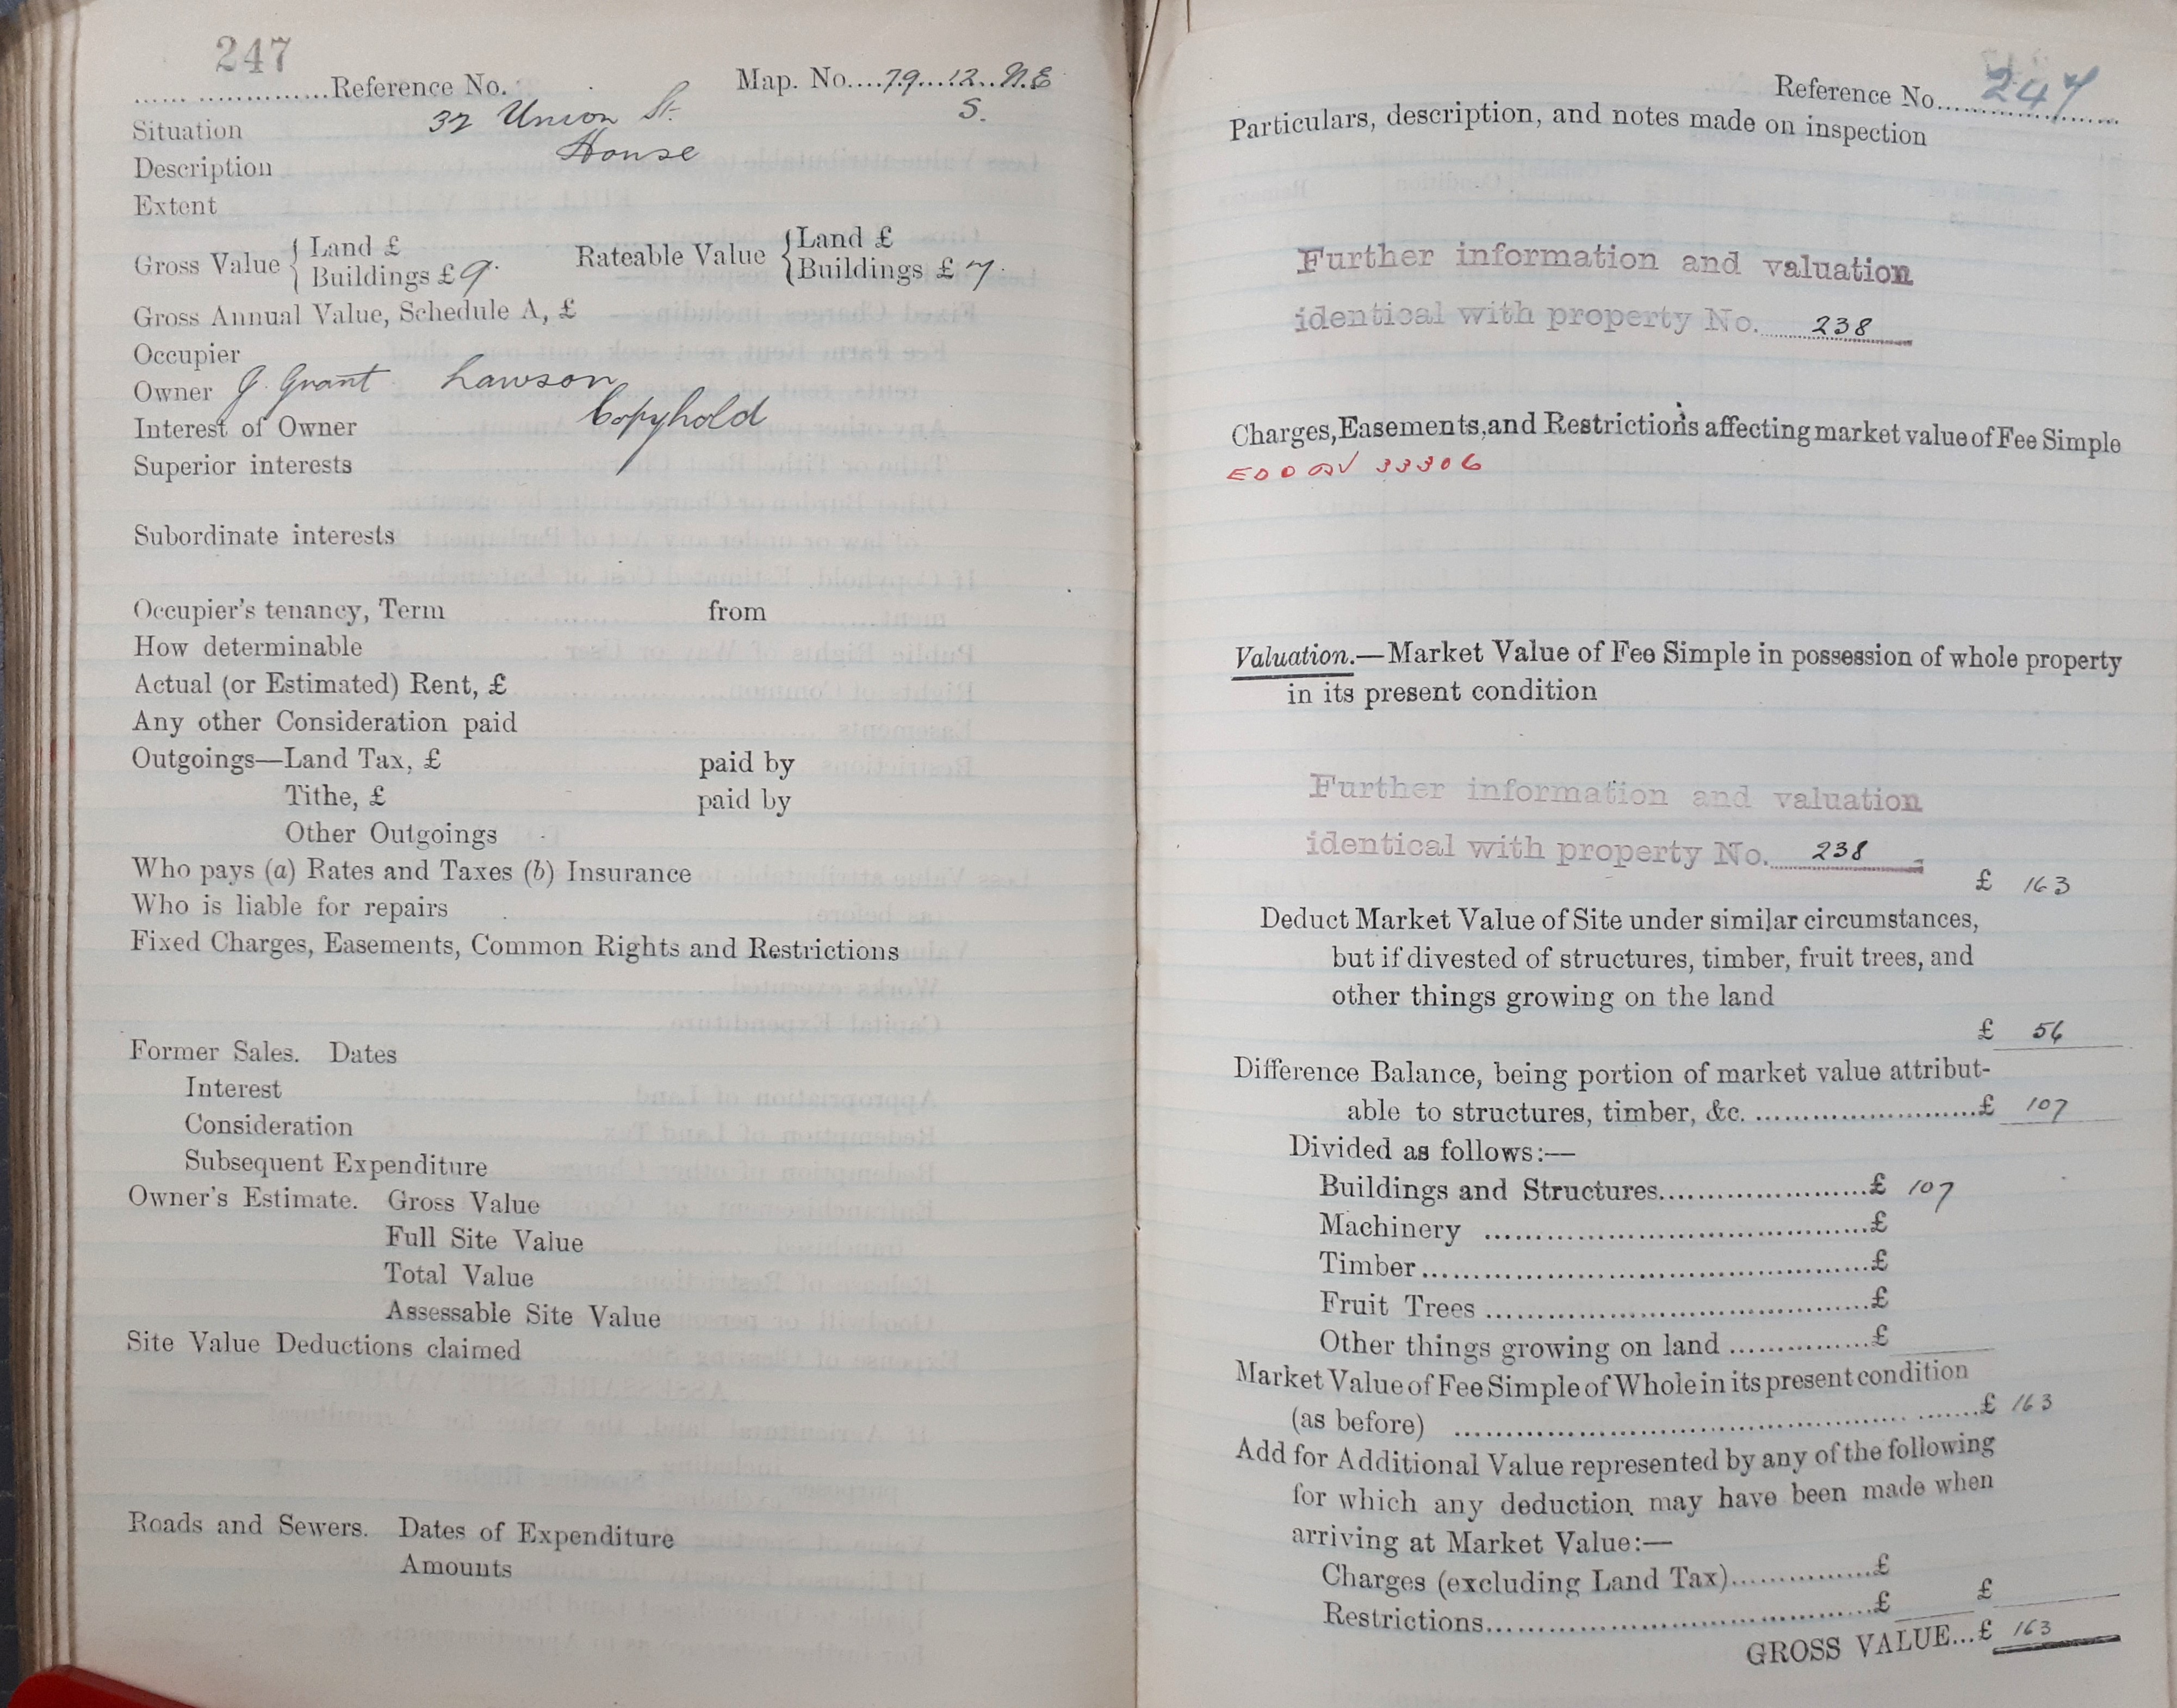 247
Reference No. Map. No....79...12..N.E
S.
Situation 32 Union St.
Description House
Extent
Gross Value { Land £
Buildings £ 9. Rateable Value { Land £
Buildings £ 7.
Gross Annual Value, Schedule A, £
Occupier
Owner J. Grant Lawson
Interest of Owner Copyhold
Superior interests
Subordinate interests
Occupier's tenancy, Term from
How determinable
Actual (or Estimated) Rent, £
Any other Consideration paid
Outgoings—Land Tax, £ paid by
Tithe, £ paid by
Other Outgoings
Who pays (a) Rates and Taxes (b) Insurance
Who is liable for repairs
Fixed Charges, Easements, Common Rights and Restrictions
Former Sales. Dates
Interest
Consideration
Subsequent Expenditure
Owner's Estimate. Gross Value
Full Site Value
Total Value
Assessable Site Value
Site Value Deductions claimed
Roads and Sewers. Dates of Expenditure
Amounts
Reference No. 247
Particulars, description, and notes made on inspection
Further information and valuation
identical with property No. 238
Charges, Easements, and Restrictions affecting market value of Fee Simple
33306
Valuation.—Market Value of Fee Simple in possession of whole property
in its present condition
Further information and valuation
identical with property No. 238
£ 163
Deduct Market Value of Site under similar circumstances,
but if divested of structures, timber, fruit trees, and
other things growing on the land
£ 56
Difference Balance, being portion of market value attribut-
able to structures, timber, &c. £ 107
Divided as follows:—
Buildings and Structures £ 107
Machinery £
Timber £
Fruit Trees £
Other things growing on land £
Market Value of Fee Simple of Whole in its present condition
(as before) £ 163
Add for Additional Value represented by any of the following
for which any deduction may have been made when
arriving at Market Value:—
Charges (excluding Land Tax) £
Restrictions £ £
GROSS VALUE...£ 163